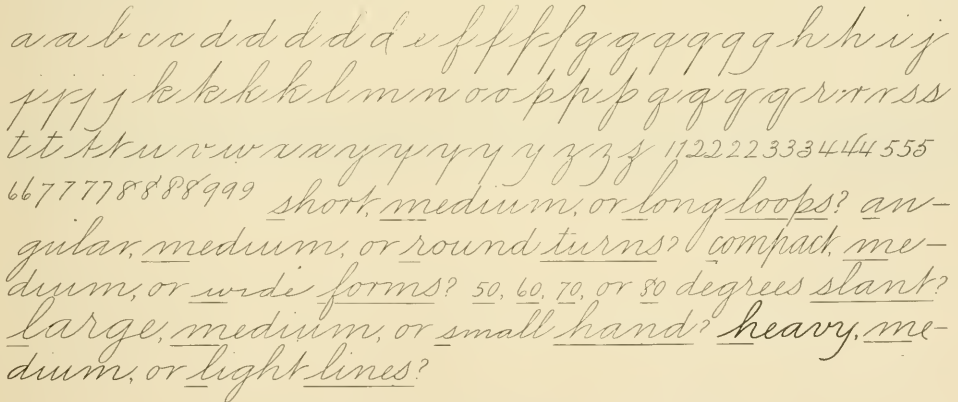 a a b c c d d d d d e f f f f g g g g g g h h i j
j j j j k k k k l m n o o p p p q q q q r r r s s
t t t t u v w x x y y y y y z z z 1 1 2 2 2 2 3 3 3 4 4 4 5 5 5
6 6 7 7 7 7 8 8 8 8 9 9 9 short, medium, or long loops? an-
gular, medium, or round turns? compact, me-
dium, or wide forms? 50, 60, 70, or 80 degrees slant?
large, medium, or small hand? heavy, me-
dium, or light lines?